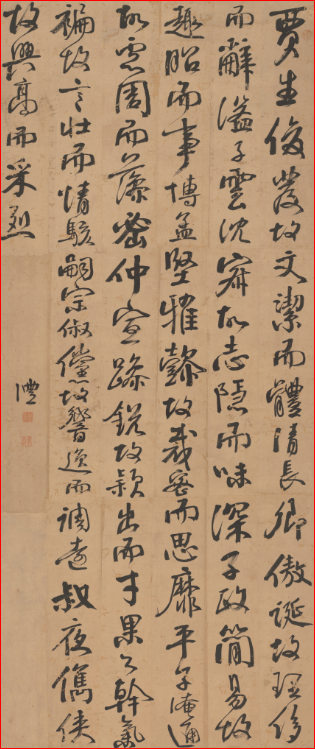 賈生俊發故文潔而體清長卿傲誕故理侈
而辭溢子雲沈寂故志隱而味深子政簡易故
趣昭而事博孟堅雅懿故裁密而思靡平子淹通
故慮周而藻密仲宣躁銳故穎出而才果公幹氣
褊故言壯而情駭嗣宗俶儻故響逸而調遠叔夜儁俠
故興高而采烈
澧